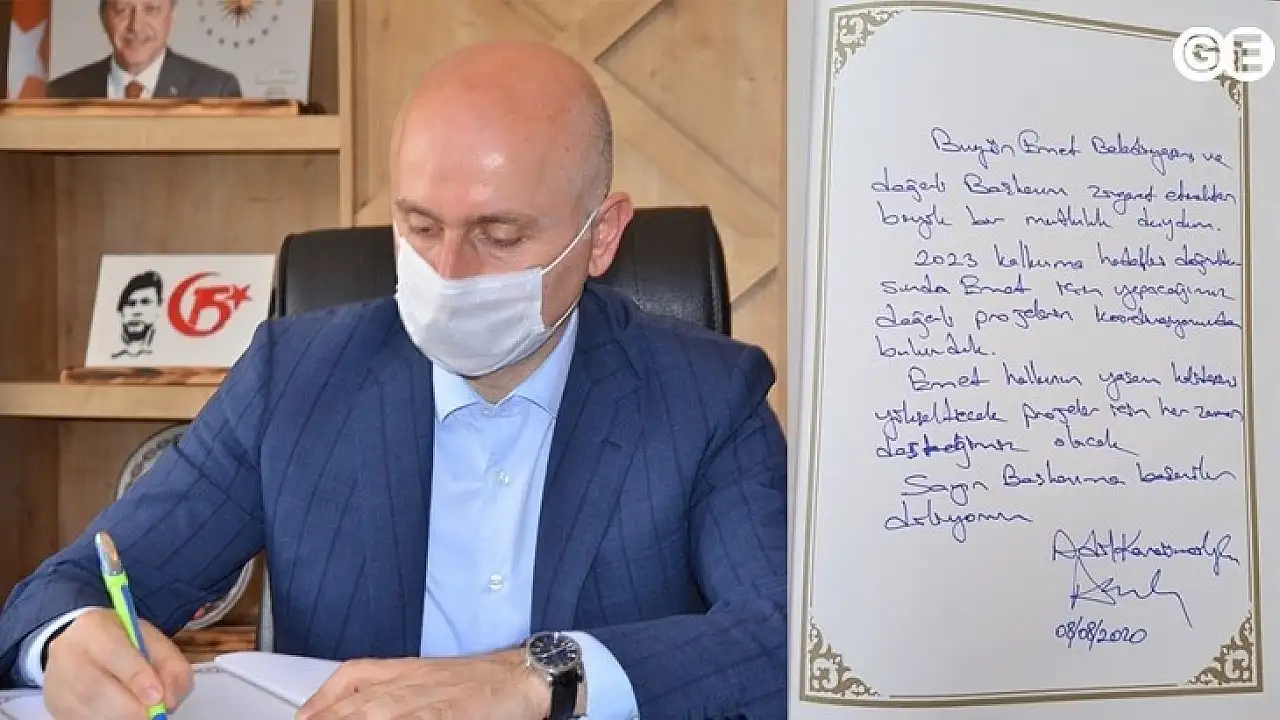 GE
15
Bugün Emet Belediyesini ve
değerli Başkanını ziyaret etmekten
büyük bir mutluluk duydum.
2023 kalkınma hedefleri doğrultu-
sunda Emet için yapacağımız
değerli projelerin koordinasyonunda
bulunduk.
Emet halkının yaşam kalitesini
yükseltecek projeler için her zaman
desteğimiz olacak
Sayın Başkanıma başarılar
diliyorum
Adil Karaismailoğlu
08/08/2020